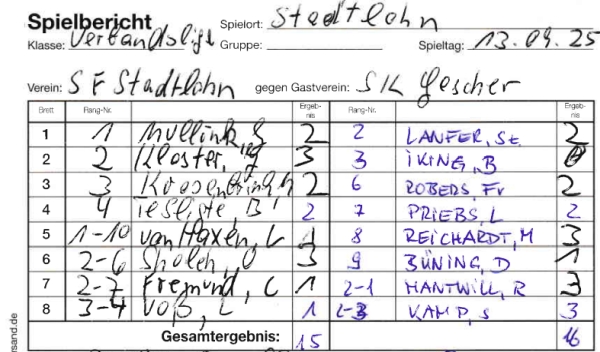 Spielbericht Spielort: Stadtlohn
Klasse: Verbandsliga Gruppe: Spieltag: 13.09.25
Verein: SF Stadtlohn gegen Gastverein: SK Gescher
Brett Rang-Nr. Ergeb-nis Rang-Nr. Ergeb-nis
1 1 2 2 LANFER, St 2
2 2 Kloster, 3 3 IKING, B 0
3 3 2 6 ROBERS, Fr 2
4 4 B 2 7 PRIEBS, L 2
5 1-10 van Haxen, L 1 8 REICHARDT, M 3
6 2-6 3 9 BÜNING, D 1
7 2-7 Fremund, C 1 2-1 HANTWILL, R 3
8 3-4 Voß, L 1 2-3 KAMP, S 3
Gesamtergebnis: 15 16
rsand.de